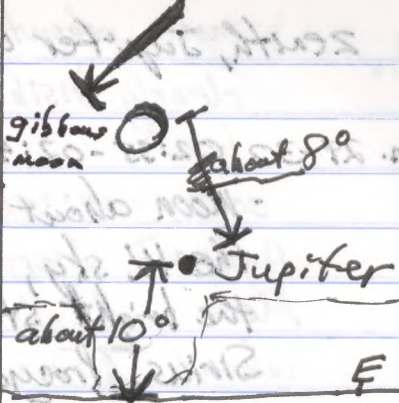 gibbous
moon
about 8°
Jupiter
about 10°
E